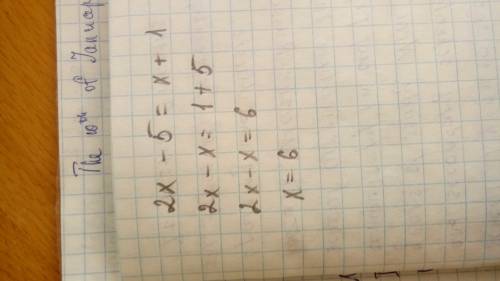 The 10th of Januar
2x - 5 = x + 1
2x - x = 1 + 5
2x - x = 6
x = 6